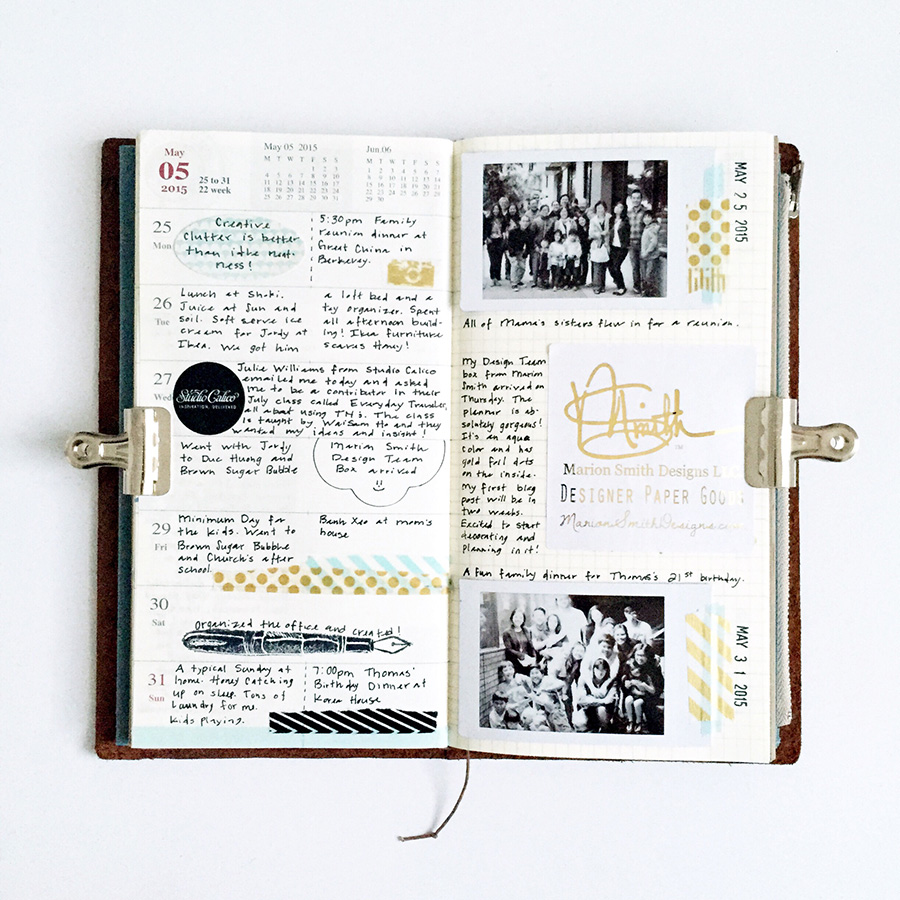 May
05
2015
25 to 31
22 week
May 05 2015
M T W T F S S
1 2 3
4 5 6 7 8 9 10
11 12 13 14 15 16 17
18 19 20 21 22 23 24
25 26 27 28 29 30 31
Jun.06
M T W T F S S
1 2 3 4 5 6 7
8 9 10 11 12 13 14
15 16 17 18 19 20 21
22 23 24 25 26 27 28
29 30
25
Mon
Creative
clutter is better
than idle neat-
ness!
5:30pm Family
reunion dinner at
Great China in
Berkeley.
26
Tue
Lunch at Shoki.
Juice at Sun and
Soil. Soft serve ice
cream for Jordy at
Ikea. We got him
a loft bed and a
toy organizer. Spent
all afternoon build-
ing! Ikea furniture
scares Honey!
27
Wed
Studio Calico
INSPIRATION, DELIVERED
Julie Williams from Studio Calico
emailed me today and asked
me to be a contributor in their
July class called Everyday Traveler,
all about using TN's. The class
is taught by WaiSam Ho and they
wanted my ideas and insight!
Went with Jordy
to Duc Huong and
Brown Sugar Bubble
Marion Smith
Design Team
Box arrived
29
Fri
Minimum Day for
the kids. Went to
Brown Sugar Bubble
and Church's after
school.
Banh Xeo at mom's
house
30
Sat
Organized the office and created!
31
Sun
A typical Sunday at
home. Honey catching
up on sleep. Tons of
laundry for me.
Kids playing.
7:00pm Thomas'
Birthday Dinner at
Korea House
MAY 25 2015
All of Mama's sisters flew in for a reunion.
My Design Team
box from Marion
Smith arrived on
Thursday. The
planner is ab-
solutely gorgeous!
It's an aqua
color and has
gold foil dots
on the inside.
My first blog
post will be in
two weeks.
Excited to start
decorating and
planning in it!
MSmith
TM
Marion Smith Designs
DESIGNER PAPER GOODS
MarionSmithDesigns.com
A fun family dinner for Thomas's 21st birthday.
MAY 31 2015